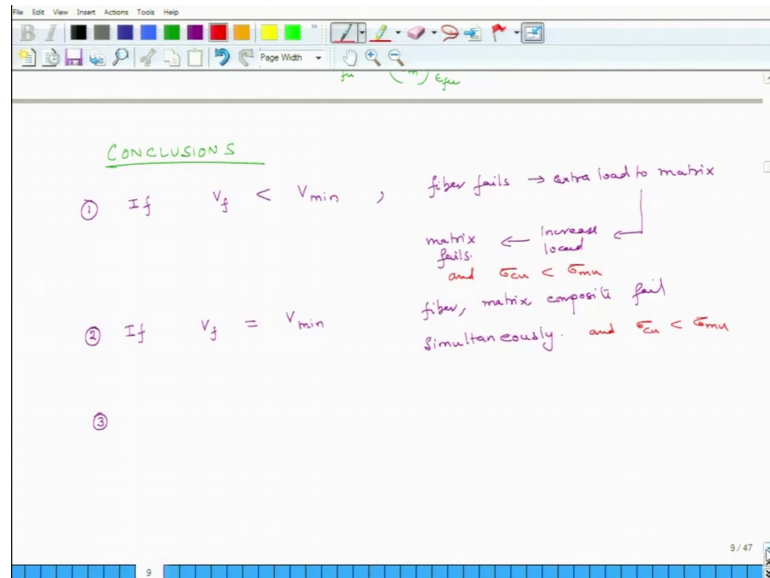 File Edit View Insert Actions Tools Help
B I
Page Width
(σm) εfu
CONCLUSIONS
① If Vf < Vmin , fiber fails → extra load to matrix
matrix fails. ← Increase load ←
and σcu < σmu
② If Vf = Vmin fiber, matrix composite fail
simultaneously. and σcu < σmu
③
9 / 47
9